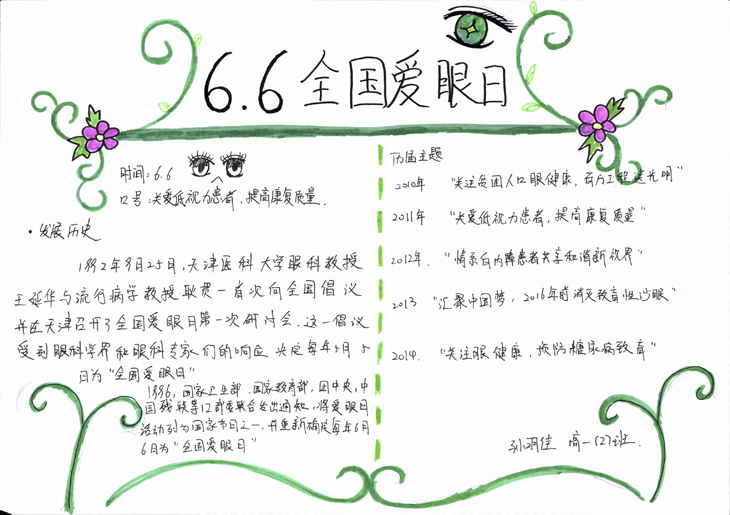 6.6 全国爱眼日
时间:6.6
口号:关爱低视力患者,提高康复质量.
·发展历史
1992年9月25日,天津医科大学眼科教授
王延华与流行病学教授耿贯一首次向全国倡议
并在天津召开了全国爱眼日第一次研讨会.这一倡议
受到眼科学界和眼科专家们的响应 决定每年5月5
日为"全国爱眼日"
1996,国家卫生部.国家教育部,团中央,中
国残联等12部委联合发出通知,将爱眼日
活动列为国家节日之一,并重新确定每年6月
6日为"全国爱眼日"
历届主题
2010年 "关注贫困人口眼健康,百万工程送光明"
2011年 "关爱低视力患者,提高康复质量"
2012年. "情系白内障患者共享和谐新视界"
2013 "汇聚中国梦,2016年前消灭致盲性沙眼"
2014. "关注眼健康,预防糖尿病致盲"
孙 佳 高一(2)班.